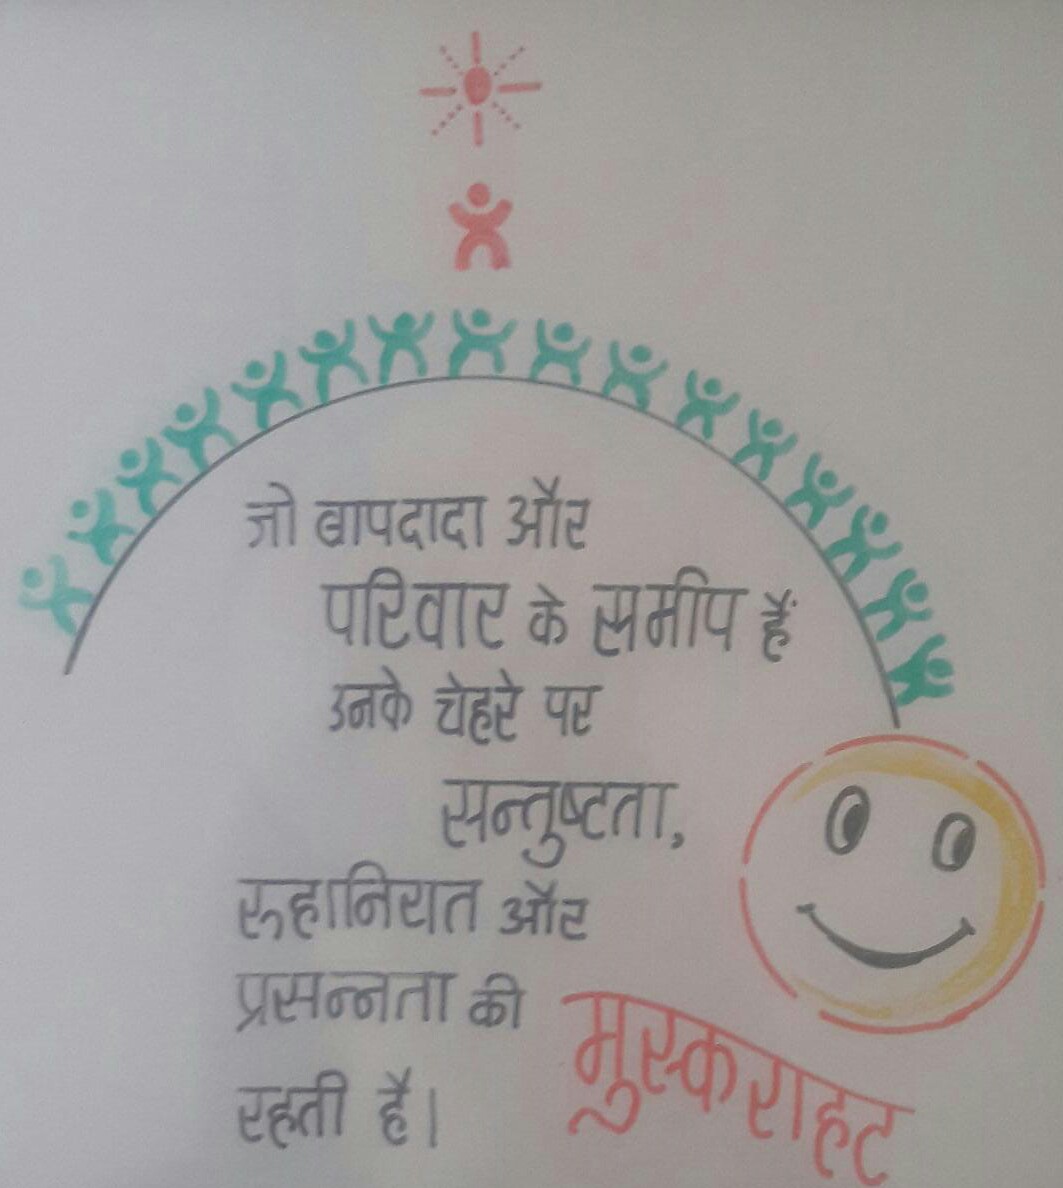 जो बापदादा और
परिवार के समीप हैं
उनके चेहरे पर
सन्तुष्टता,
रुहानियत और
प्रसन्नता की मुस्कराहट
रहती है।